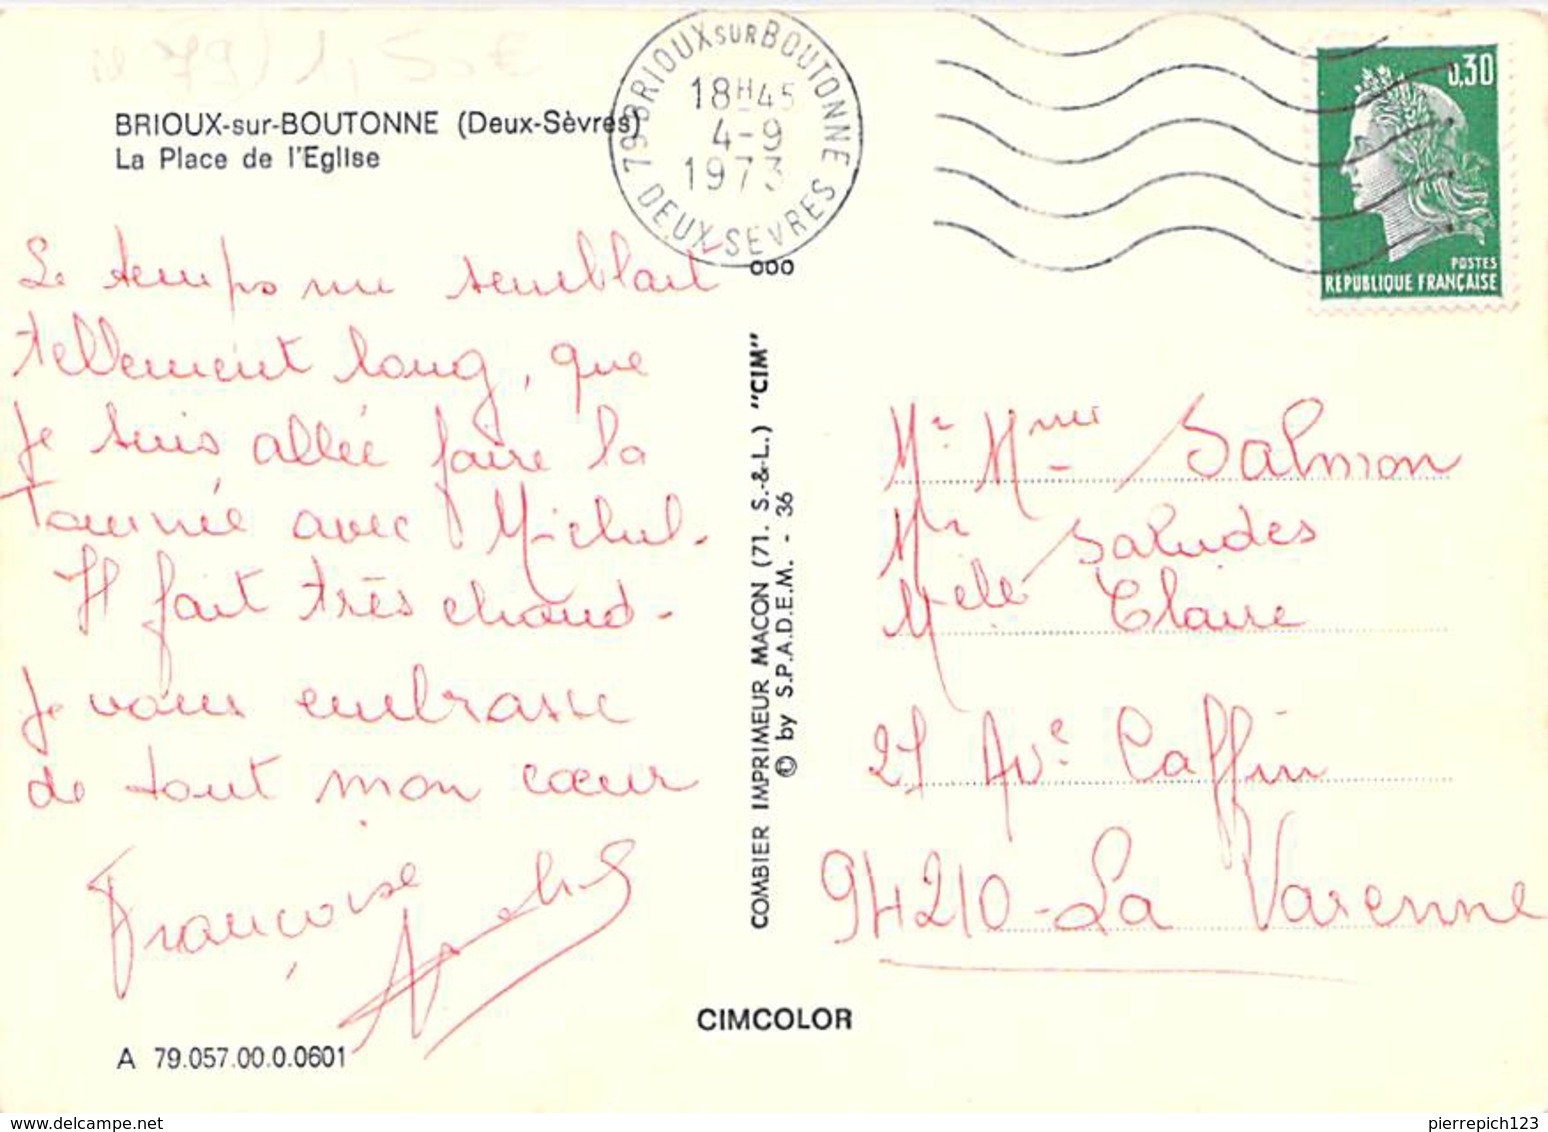 79) 1,50€
BRIOUX-sur-BOUTONNE (Deux-Sèvres)
La Place de l'Eglise
79 BRIOUX SUR BOUTONNE
18H45
4-9
1973
DEUX-SEVRES
000
0,30
POSTES
REPUBLIQUE FRANÇAISE
Le temps me semblait
tellement long, que
je suis allée faire la
tournée avec Michel.
Il fait très chaud.
Je vous embrasse
de tout mon cœur
Françoise
COMBIER IMPRIMEUR MACON (71. S.-&-L.) "CIM"
© by S.P.A.D.E.M. - 36
Mr Mme Salmon
Mr Saludes
Melle Claire
27 Ave Caffin
94210 - La Varenne
CIMCOLOR
A 79.057.00.0.0601
pierrepich123